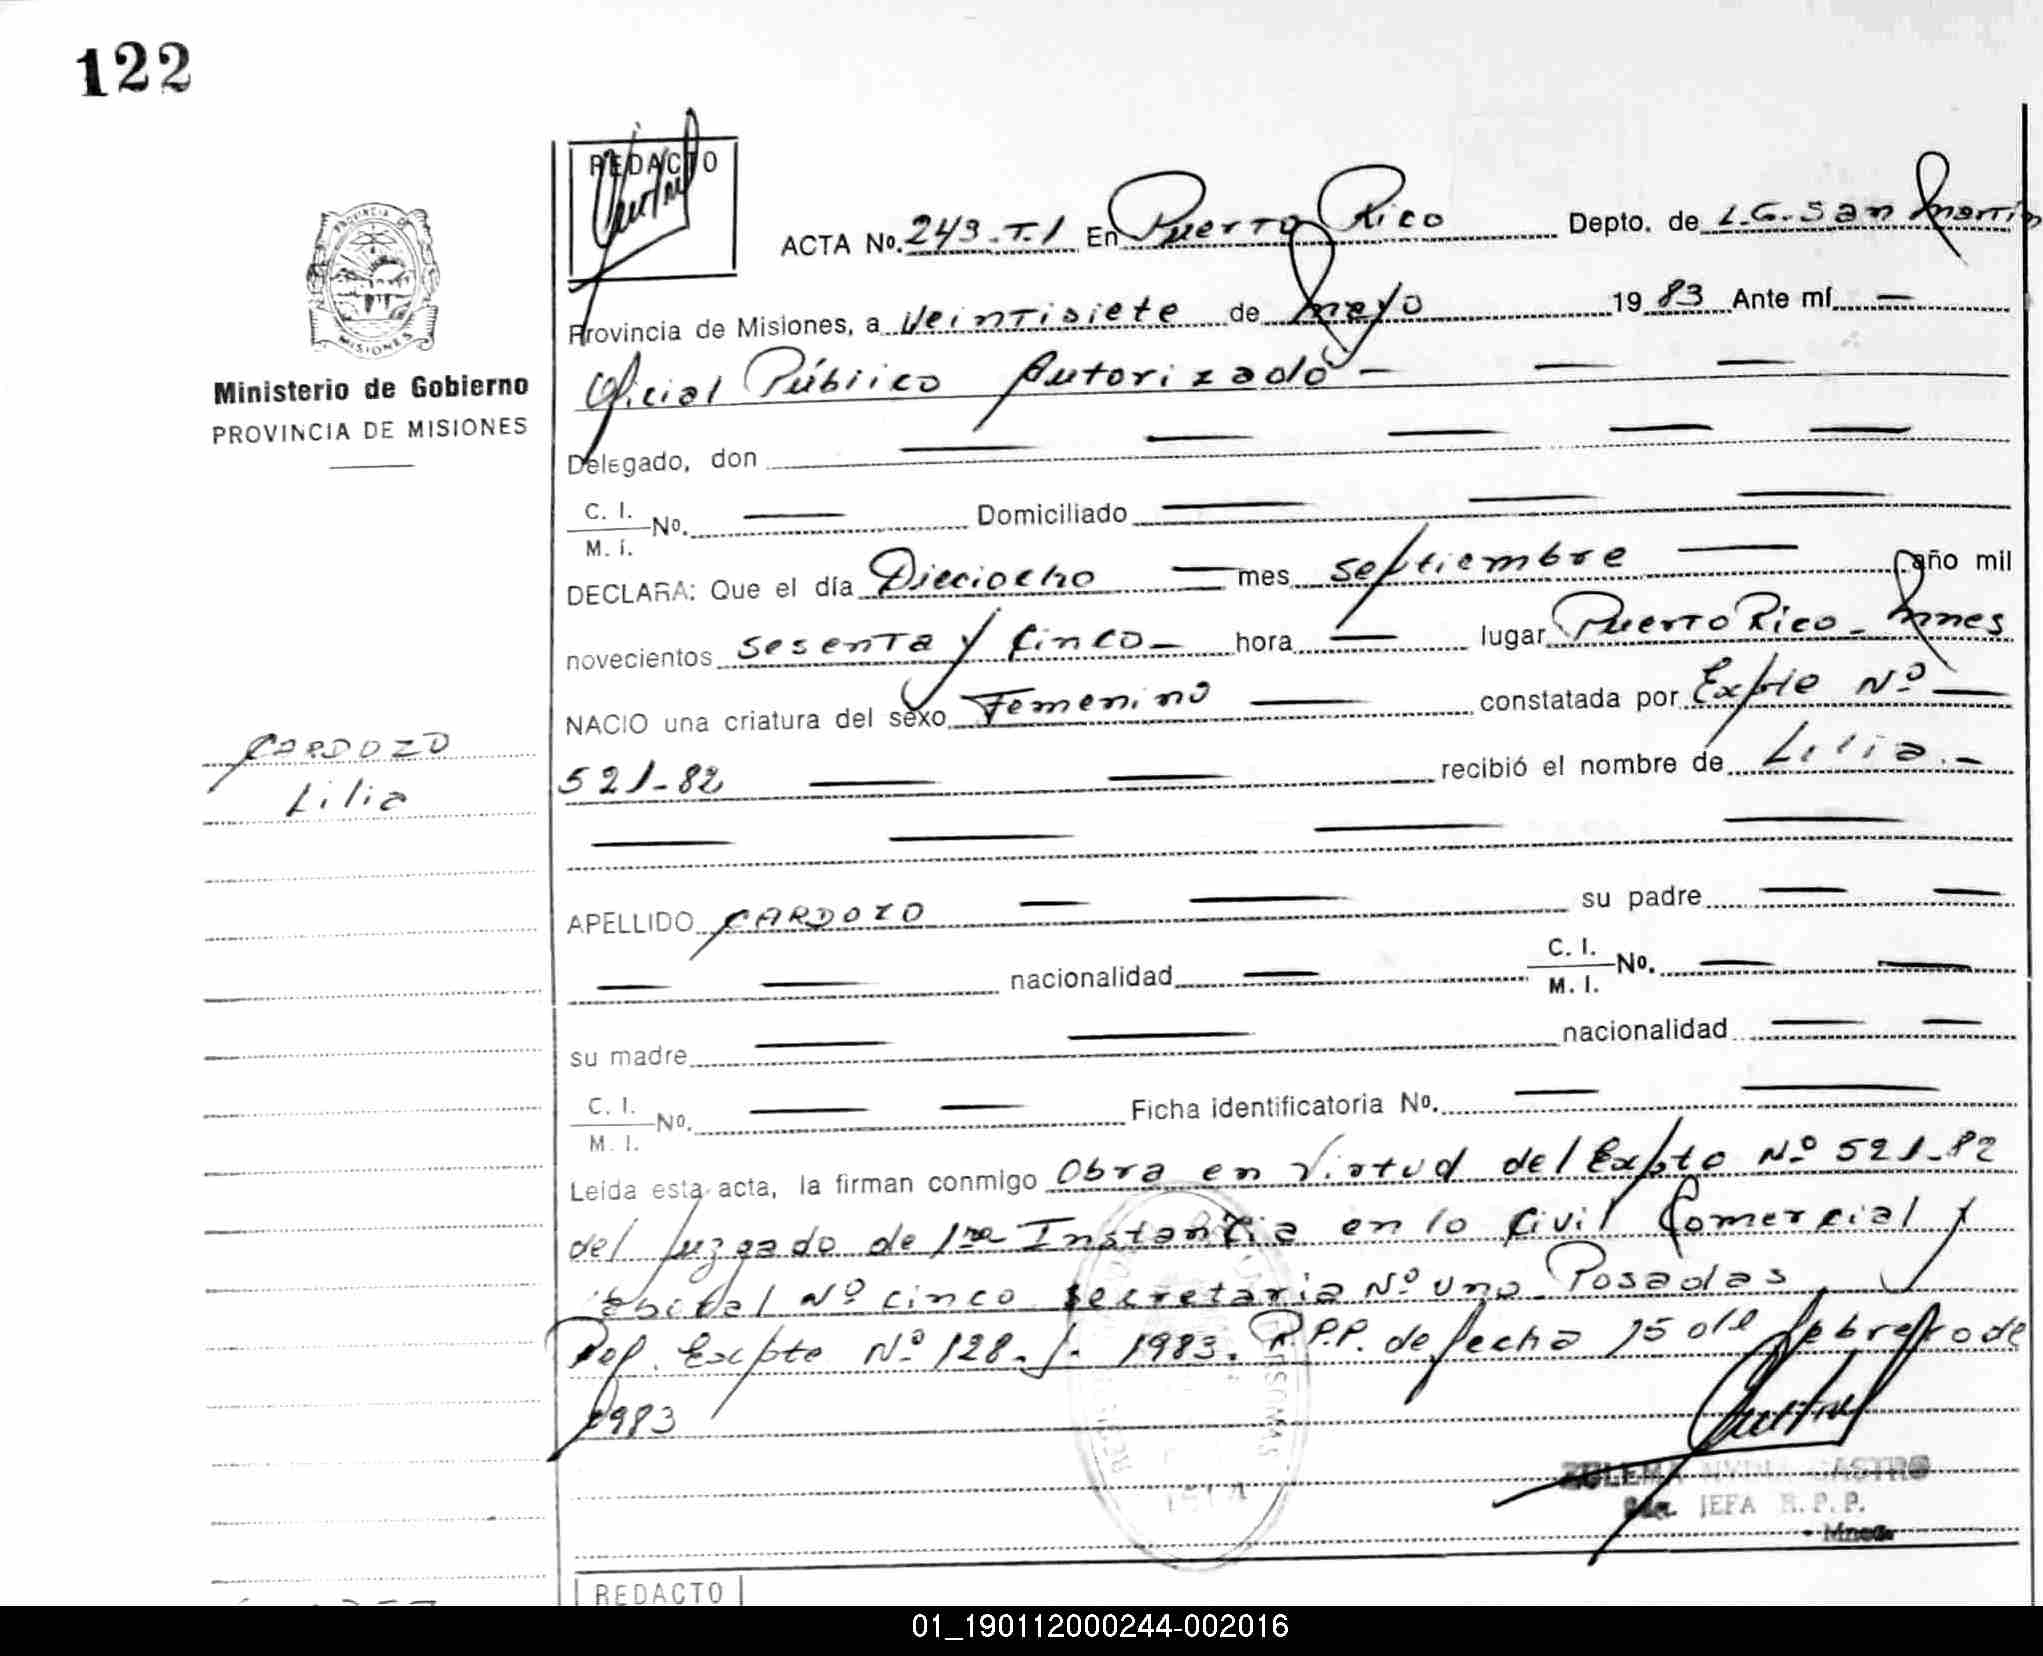 122
REDACTO
ACTA No. 243-T.1 En Puerto Rico Depto. de L.G. San Martín
Provincia de Misiones, a Veintisiete de Mayo 1983 Ante mí —
Oficial Público Autorizado — — —
PROVINCIA DE
MISIONES
Ministerio de Gobierno
PROVINCIA DE MISIONES
Delegado, don — — — — —
C. I.
M. I. No. — Domiciliado — — —
DECLARA: Que el día Dieciocho — mes septiembre — año mil
novecientos sesenta y Cinco — hora — lugar Puerto Rico - Mnes
NACIO una criatura del sexo Femenino — constatada por Expte Nº —
521-82 — — recibió el nombre de Lilia. —
CARDOZO
Lilia
— — — —
APELLIDO CARDOZO — — su padre — —
— — nacionalidad — C. I.
M. I. No. — —
su madre — — nacionalidad — —
C. I.
M. I. No. — — Ficha identificatoria No. — —
Leída esta acta, la firman conmigo Obra en Virtud del Expte Nº 521-82
del Juzgado de 1ra Instancia en lo Civil Comercial y
Laboral Nº cinco Secretaria Nº uno Posadas
Ref. Expte Nº 128-/- 1983. R.P.P. de fecha 15 del febrero de
1983
ZULEMA NYDIA CASTRO
JEFA R. P. P.
Mnes.
REDACTO
01_190112000244-002016